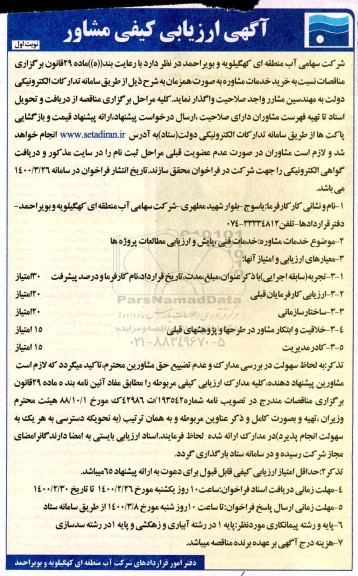 آگهی ارزیابی کیفی مشاور
نوبت اول
شرکت سهامی آب منطقه ای کهگیلویه و بویراحمد در نظر دارد با رعایت بند((ه))ماده ۲۹قانون برگزاری
مناقصات نسبت به خرید خدمات مشاوره به صورت همزمان به شرح ذیل از طریق سامانه تدارکات الکترونیکی
دولت به مهندسین مشاور واجد صلاحیت واگذار نماید. کلیه مراحل برگزاری مناقصه از دریافت و تحویل
اسناد تا تهیه فهرست مشاوران دارای صلاحیت ،ارسال درخواست پیشنهاد،ارائه پیشنهاد قیمت و بازگشایی
پاکت ها از طریق سامانه تدارکات الکترونیکی دولت(ستاد)به آدرس www.setadiran.ir انجام خواهد
شد و لازم است مشاوران در صورت عدم عضویت قبلی مراحل ثبت نام را در سایت مذکور و دریافت
گواهی الکترونیکی را جهت شرکت در فراخوان محقق سازند.تاریخ انتشار فراخوان در سامانه ۱۴۰۰/۲/۲۶
می باشد.
۱-نام و نشانی کار کارفرما:یاسوج-بلوار شهید مطهری-شرکت سهامی آب منطقه ای کهگیلویه و بویراحمد-
دفتر قراردادها-تلفن۳۳۳۳۴۸۱۲-۰۷۴
۲-موضوع خدمات مشاوره:خدمات فنی ،پایش و ارزیابی مطالعات پروژه ها
۳-معیارهای ارزیابی و امتیاز آنها:
۳-۱-تجربه(سابقه اجرایی)با ذکر عنوان،مبلغ،مدت،تاریخ قرارداد،نام کارفرما و درصد پیشرفت ۳۰امتیاز
۳-۲-ارزیابی کارفرمایان قبلی ۲۰امتیاز
۳-۳-ساختارسازمانی ۲۰امتیاز
۳-۴-خلاقیت و ابتکار مشاور در طرحها و پژوهشهای قبلی ۱۵ امتیاز
۳-۵-کادر مدیریت ۱۵ امتیاز
تذکر:به لحاظ سهولت در بررسی مدارک و عدم تضییع حق مشاورین محترم،تاکید میگردد که لازم است
مشاورین پیشنهاد دهنده، کلیه مدارک ارزیابی کیفی مربوطه را مطابق مفاد آئین نامه بنده ماده ۲۹قانون
برگزاری مناقصات مندرج در تصویب نامه شماره۱۹۳۵۴۲/ت۴۲۹۸۶ک مورخ ۸۸/۱۰/۱ هیئت محترم
وزیران ،تهیه و بصورت کامل و ذکر عناوین مربوطه و به همان ترتیب (به نحویکه دسترسی به هر یک به
سهولت انجام پذیرد)در مدارک ارائه شده لحاظ فرمایند.اسناد ارزیابی بایستی به امضا دارندگانرامضای
مجاز شرکت رسیده و در سامانه ستاد بارگذاری گردد.
تذکر۲:حداقل امتیاز ارزیابی کیفی قابل قبول برای دعوت به ارائه پیشنهاد ۶۵میباشد.
۴-مهلت زمانی دریافت اسناد فراخوان:ساعت ۱۰ روز یکشنبه مورخ ۱۴۰۰/۲/۲۶ تا تاریخ ۱۴۰۰/۲/۳۰
۵-مهلت زمانی ارسال پاسخ فراخوان:تا ساعت ۱۰ روز شنبه مورخ ۱۴۰۰/۳/۸ از طریق سامانه ستاد
۶-پایه و رشته پیمانکاری موردنظر:پایه ۱ در رشته آبیاری و زهکشی و پایه ۱در رشته سدسازی
۷-هزینه درج آگهی بر عهده برنده مناقصه میباشد.
دفتر امور قراردادهای شرکت آب منطقه ای کهگیلویه و بویراحمد
ParsNamadData
۰۲۱-۸۸۳۴۹۶۷۰-۵